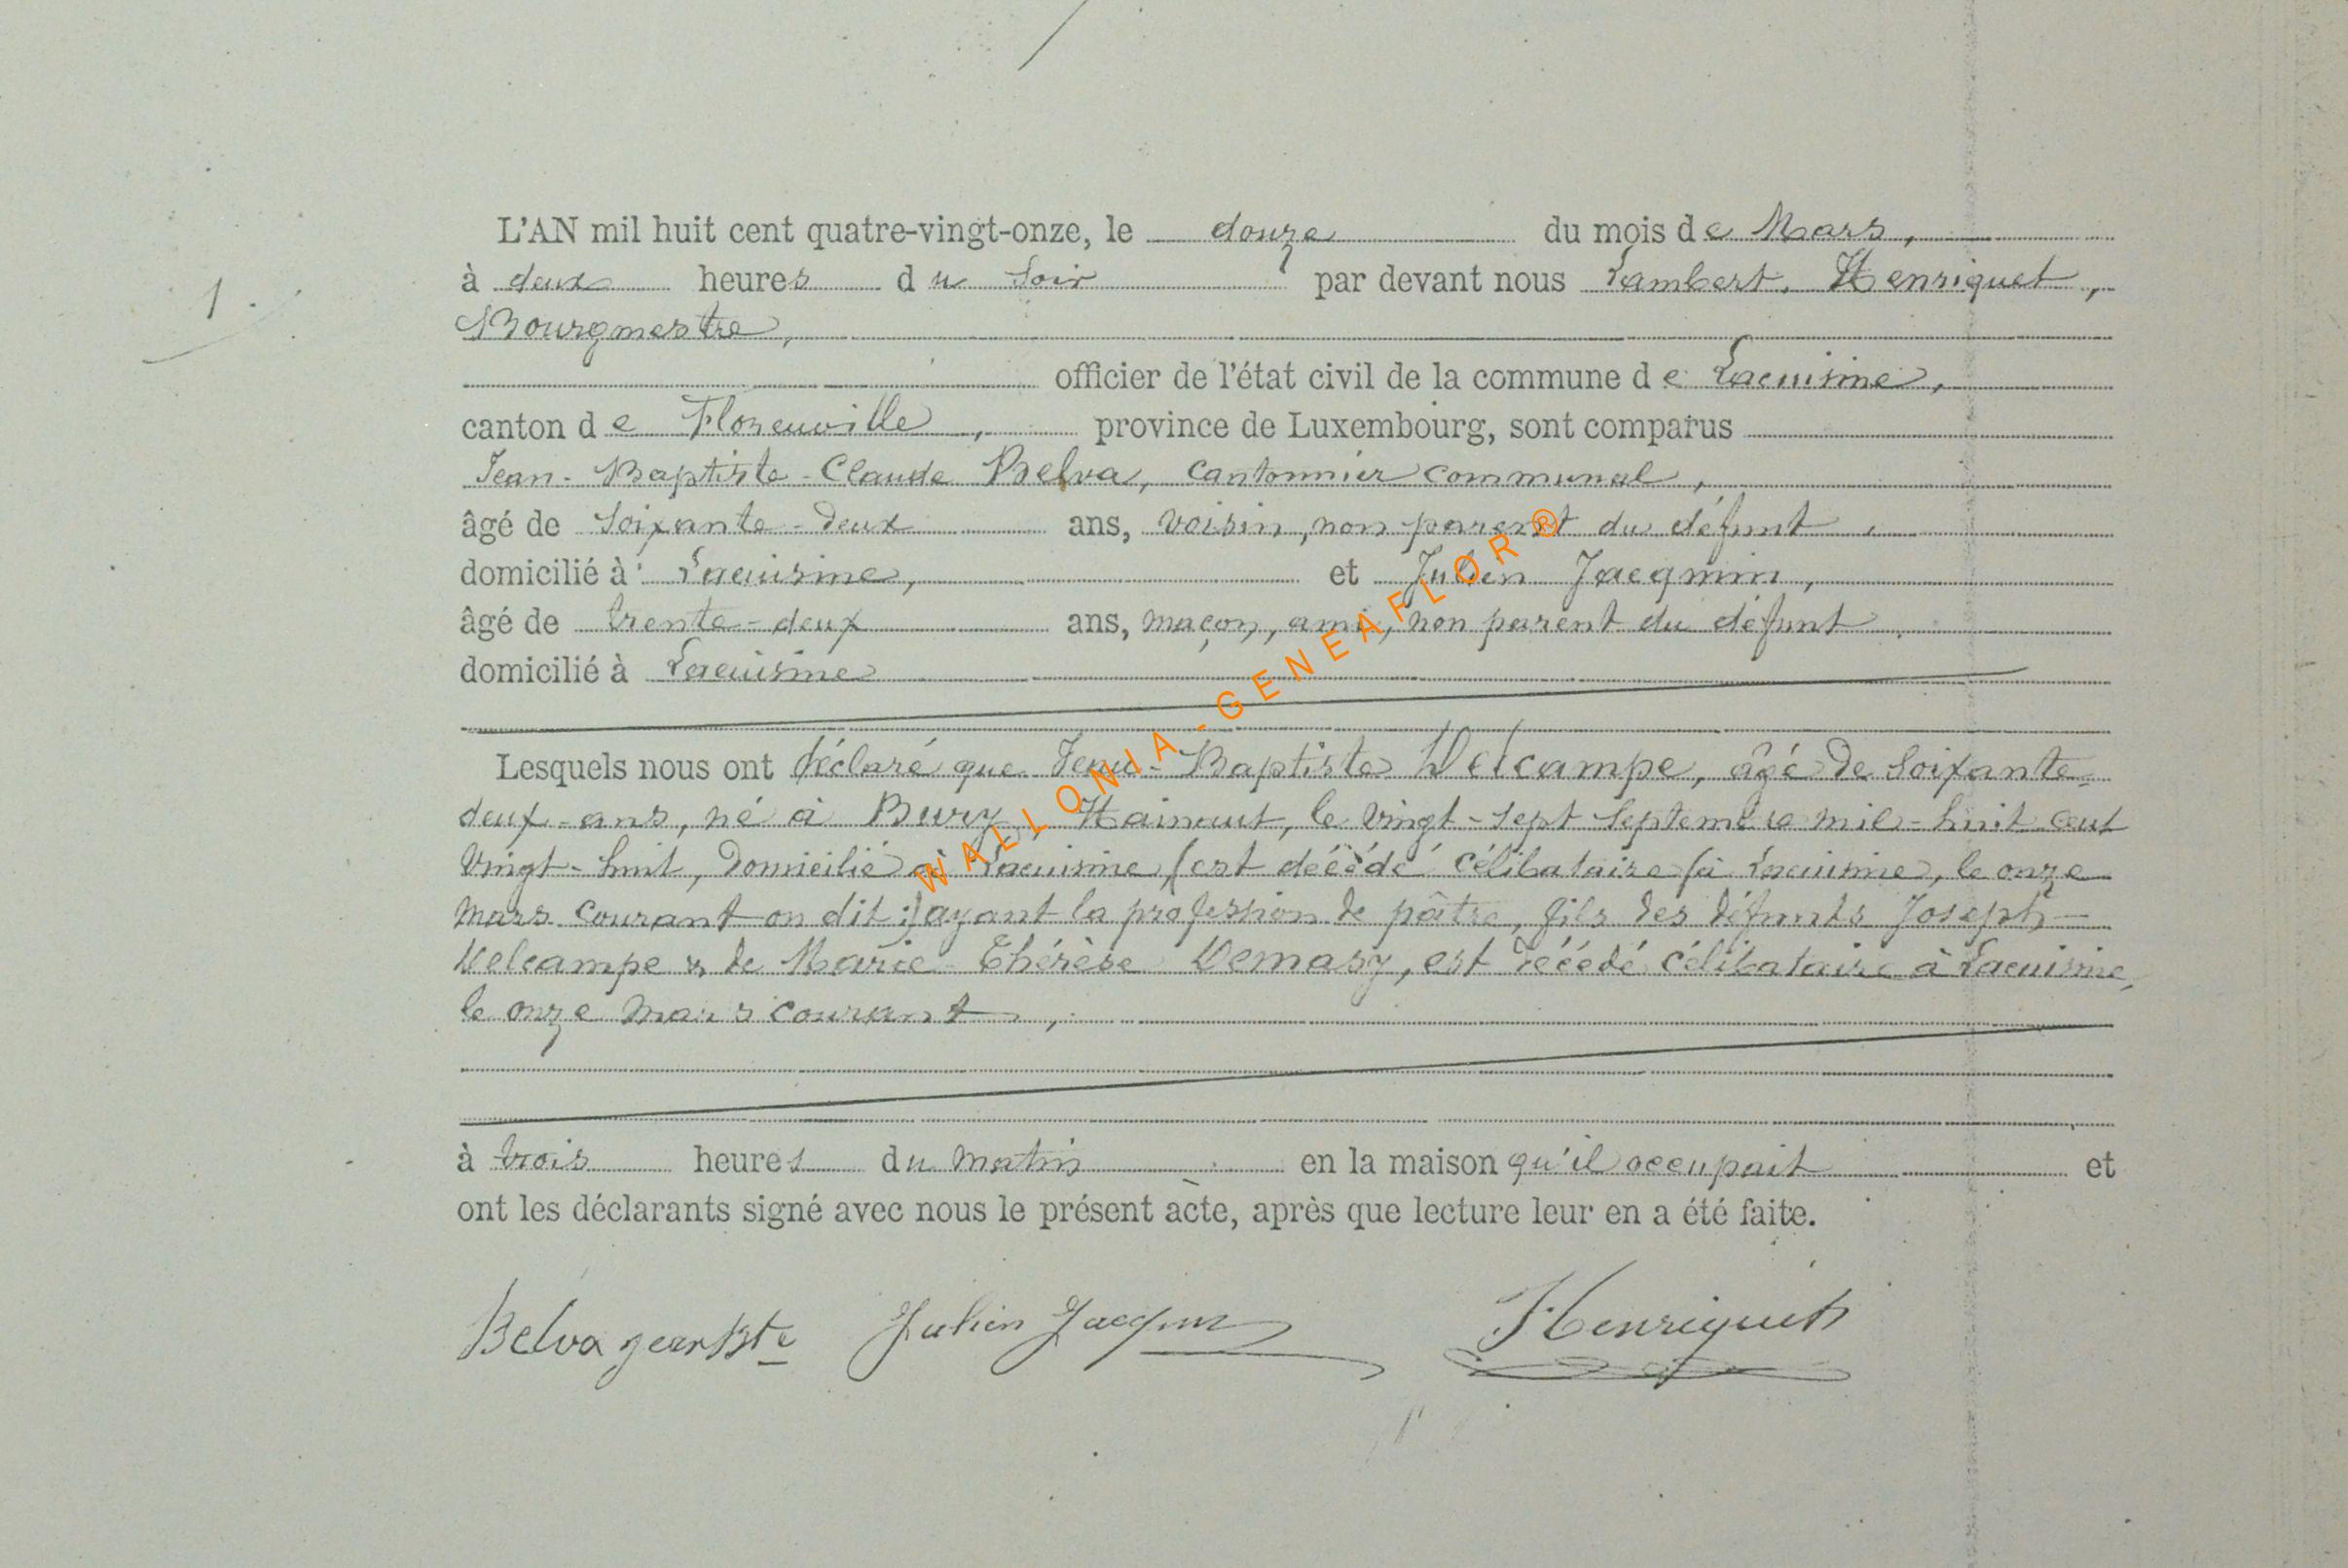 1.
L'AN mil huit cent quatre-vingt-onze, le douze du mois de Mars,
à deux heures du soir par devant nous Lambert Henriquet,
Bourgmestre,
officier de l'état civil de la commune de Lacuisine,
canton de Florenville, province de Luxembourg, sont comparus
Jean-Baptiste-Claude Belva, cantonnier communal,
âgé de soixante-deux ans, voisin, non parent du défunt,
domicilié à Lacuisine, et Julien Jacqmin,
âgé de trente-deux ans, maçon, ami, non parent du défunt
domicilié à Lacuisine
Lesquels nous ont déclaré que Jean-Baptiste Delcampe, âgé de soixante-
deux-ans, né à Bury Hainaut, le vingt-sept septembre mil-huit-cent
vingt-huit, domicilié à Lacuisine, (est décédé célibataire (à Lacuisine, le onze
mars courant on dit:) ayant la profession de pâtre, fils des défunts Joseph
Delcampe & de Marie-Thérèse Demasy, est décédé célibataire à Lacuisine,
le onze mars courant,
à trois heures du matin en la maison qu'il occupait et
ont les déclarants signé avec nous le présent acte, après que lecture leur en a été faite.
Belva jean Bte Julien Jacqmin Henriquet
WALLONIA-GENEAFLOR®